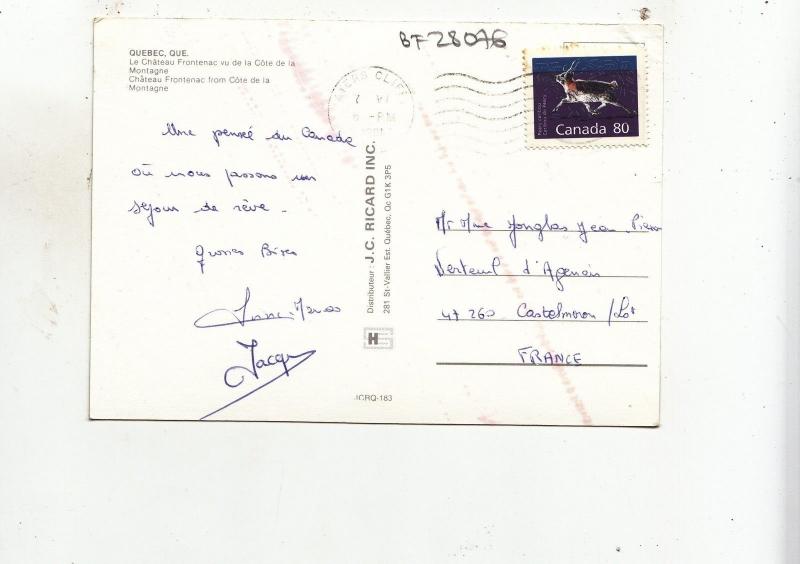 BF28076
QUEBEC, QUE.
Le Château Frontenac vu de la Côte de la
Montagne
Château Frontenac from Côte de la
Montagne
AYERS CLIFF
PM
Canada 80
Une pensé du Canada
où nous passons un
séjour de rêve.
Grosses Bises
Jacqu
Distributeur : J.C. RICARD INC.
281 St-Vallier Est, Québec, Qc G1K 3P5
JCRQ-183
Mr Mme Jonglas Jean-Pierre
Verteuil d'Agenais
47260 Castelmoron / Lot
FRANCE